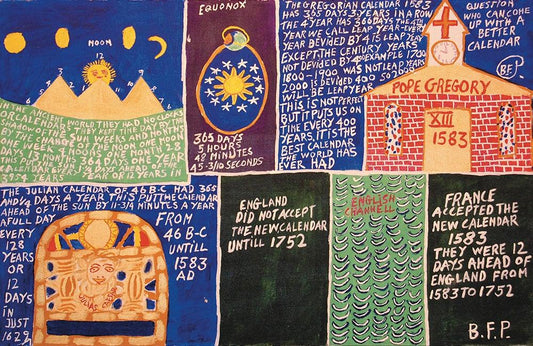 NOOM
12
ANCIENT WORLD THEY HAD NO CLOCK
OR CALENDAR THEY KEPT TIME BY THE
SHADOW OF THE SUN WEEKS AND MONTHS
BY THE
ONE WEEK
OF THE MOON ONE MOON
EQUONOX
365 DAYS
5 HOURS
48 MINUTES
45-3/10 SECONDS
THE GREGORIAN CALENDAR 1583
HAS 365 DAYS 3 YEARS IN A ROW
THE 4 YEAR HAS 366 DAYS THE 4TH
YEAR WE CALL LEAP YEAR EVERY
YEAR DEVIDED BY 4 IS LEAP YEAR
EXCEPT THE CENTURY YEARS
NOT DEVIDED BY 400 EXAMPLE 1700
1800-1900 WAS NOT LEAP YEARS
2000 IS DEVIDED 400 SO 2000
WILL BE LEAP YEAR
THIS IS NOT PERFECT
BUT IT PUTS US ON
TIME EVERY
YEARS. IT IS THE
BEST CALENDAR
THE WORLD HAS
EVER HAD
QUESTION
WHO CAN COME
UP WITH A
BETTER
CALENDAR
B.F.P.
POPE GREGORY
XIII
1583
THE JULIAN CALENDAR OF 46 B-C HAD 365
AND 1/4 DAYS A YEAR THIS PUT THE CALENDAR
AHEAD OF THE SUN BY 11-3/4 MINUTES A YEAR
A FULL DAY
EVERY
128
YEARS
OR
12
DAYS
IN
JUST
1629
FROM
46 B-C
UNTILL
1583
AD
ENGLAND
DID NOT ACCEPT
THE NEW CALENDAR
UNTILL 1752
ENGLISH
CHANNELL
FRANCE
ACCEPTED THE
NEW CALENDAR
1583
THEY WERE 12
DAYS AHEAD OF
ENGLAND FROM
1583 TO 1752
B.F.P.